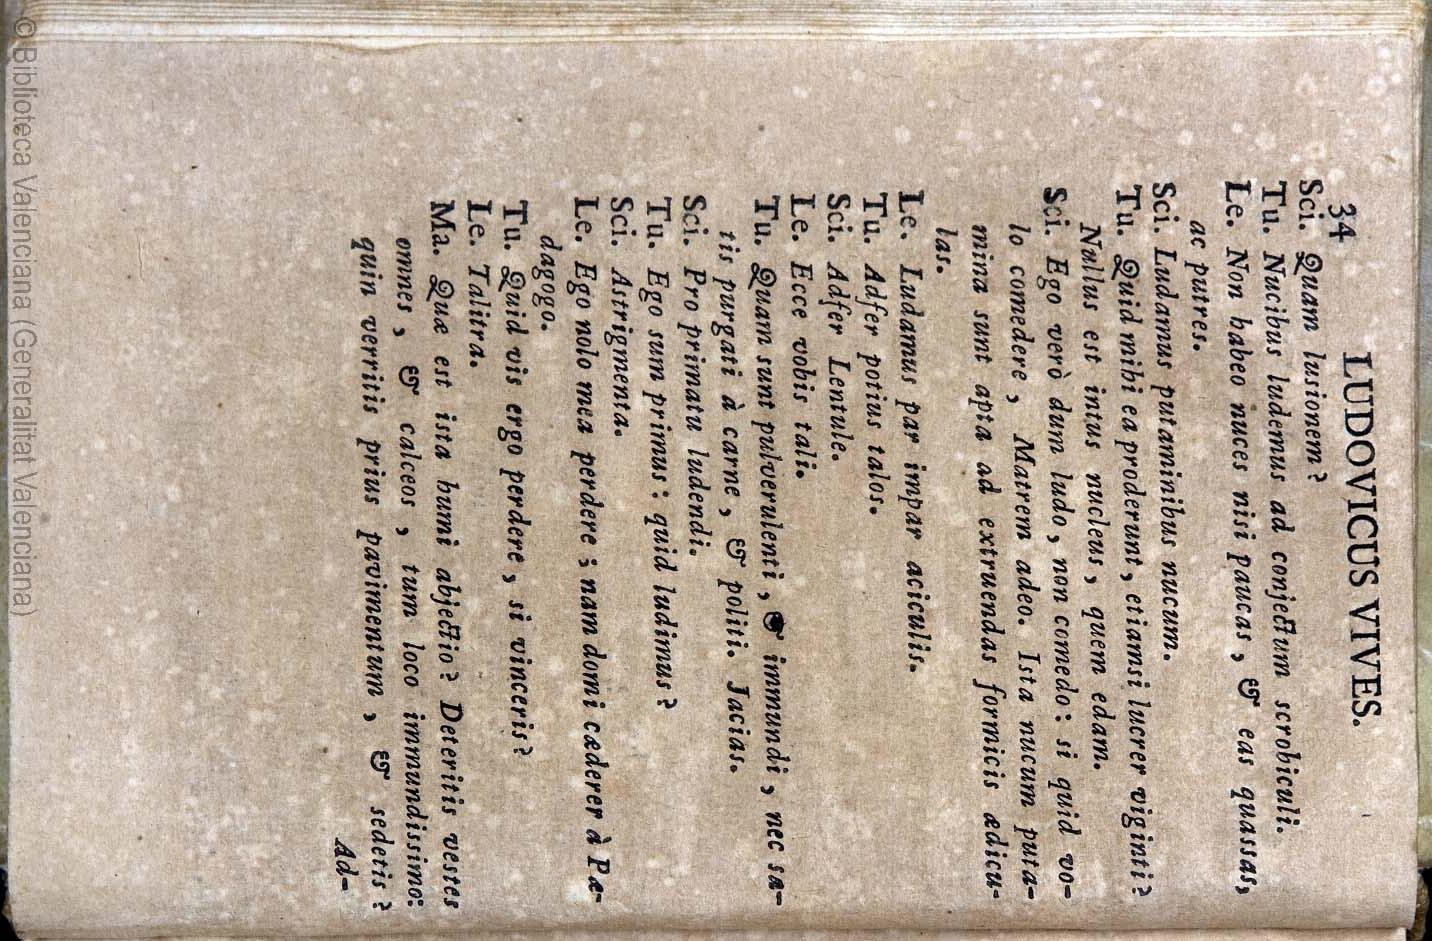 34 LUDOVICUS VIVES.
Sci. Quam lusionem?
Tu. Nucibus ludemus ad conjectum scrobiculi.
Le. Non habeo nuces nisi paucas, & eas quassas,
ac putres.
Sci. Ludamus putaminibus nucum.
Tu. Quid mihi ea proderunt, etiamsi lucrer viginti?
Nullus est intus nucleus, quem edam.
Sci. Ego verò dum ludo, non comedo: si quid vo-
lo comedere, Matrem adeo. Ista nucum puta-
mina sunt apta ad extruendas formicis ædicu-
las.
Le. Ludamus par impar aciculis.
Tu. Adfer potius talos.
Sci. Adfer Lentule.
Le. Ecce vobis tali.
Tu. Quam sunt pulverulenti, & immundi, nec sa-
tis purgati à carne, & politi. Jacias.
Sci. Pro primatu ludendi.
Tu. Ego sum primus: quid ludimus?
Sci. Astrigmenta.
Le. Ego nolo mea perdere; nam domi cæderer à Pæ-
dagogo.
Tu. Quid vis ergo perdere, si vinceris?
Le. Talitra.
Ma. Quæ est ista humi abjectio? Deteritis vestes
omnes, & calceos, tum loco immundissimo:
quin verritis prius pavimentum, & sedetis?
Ad-
© Biblioteca Valenciana (Generalitat Valenciana)